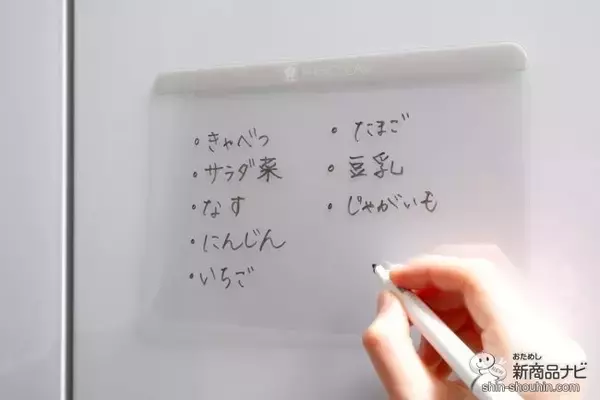 ・きゃべつ
・サラダ菜
・なす
・にんじん
・いちご
・たまご
・豆乳
・じゃがいも
おためし
新商品ナビ
shin-shouhin.com